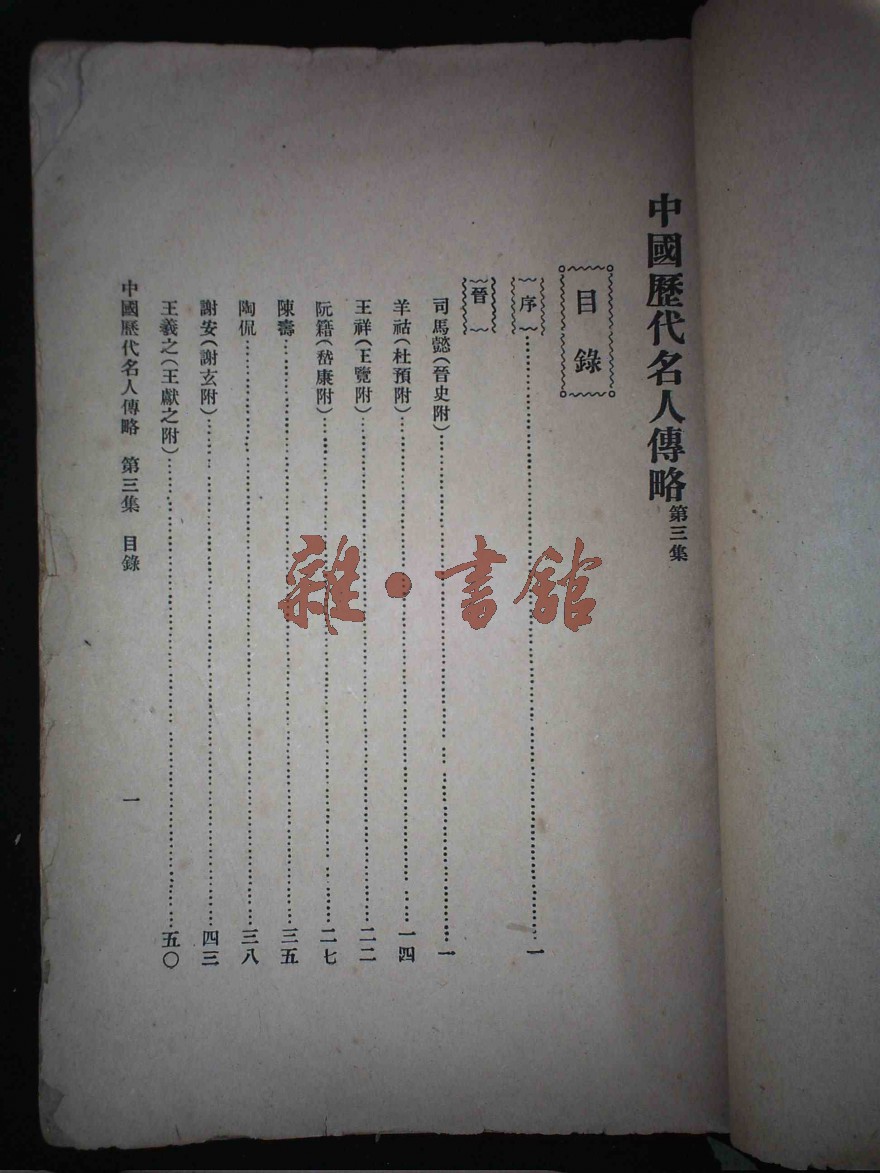 中國歷代名人傳略 第三集
目錄
序……一
晉
司馬懿(晉史附)……一
羊祜(杜預附)……一四
王祥(王覽附)……二二
阮籍(嵇康附)……二七
陳壽……三五
陶侃……三八
謝安(謝玄附)……四三
王羲之(王獻之附)……五〇
中國歷代名人傳略 第三集 目錄 一
雜·書館